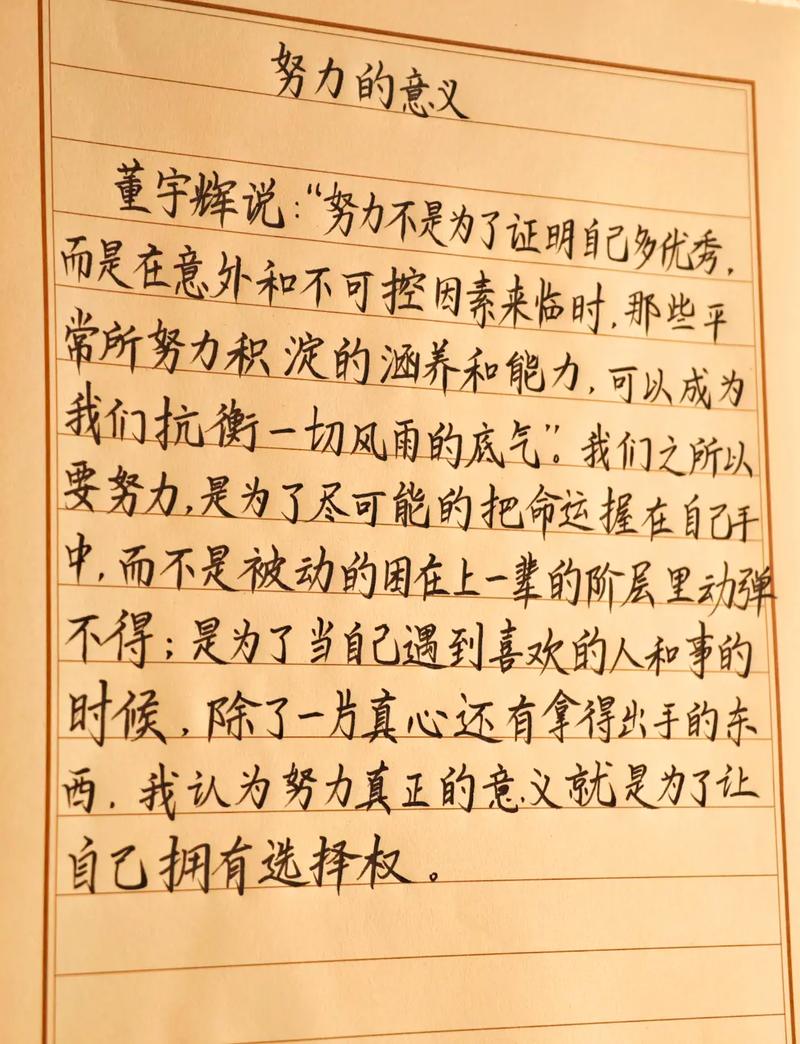 努力的意义
董宇辉说：“努力不是为了证明自己多优秀，
而是在意外和不可控因素来临时，那些平
常所努力积淀的涵养和能力，可以成为
我们抗衡一切风雨的底气”。我们之所以
要努力，是为了尽可能的把命运握在自己手
中，而不是被动的困在上一辈的阶层里动弹
不得；是为了当自己遇到喜欢的人和事的
时候，除了一片真心还有拿得出手的东
西．我认为努力真正的意义就是为了让
自己拥有选择权。